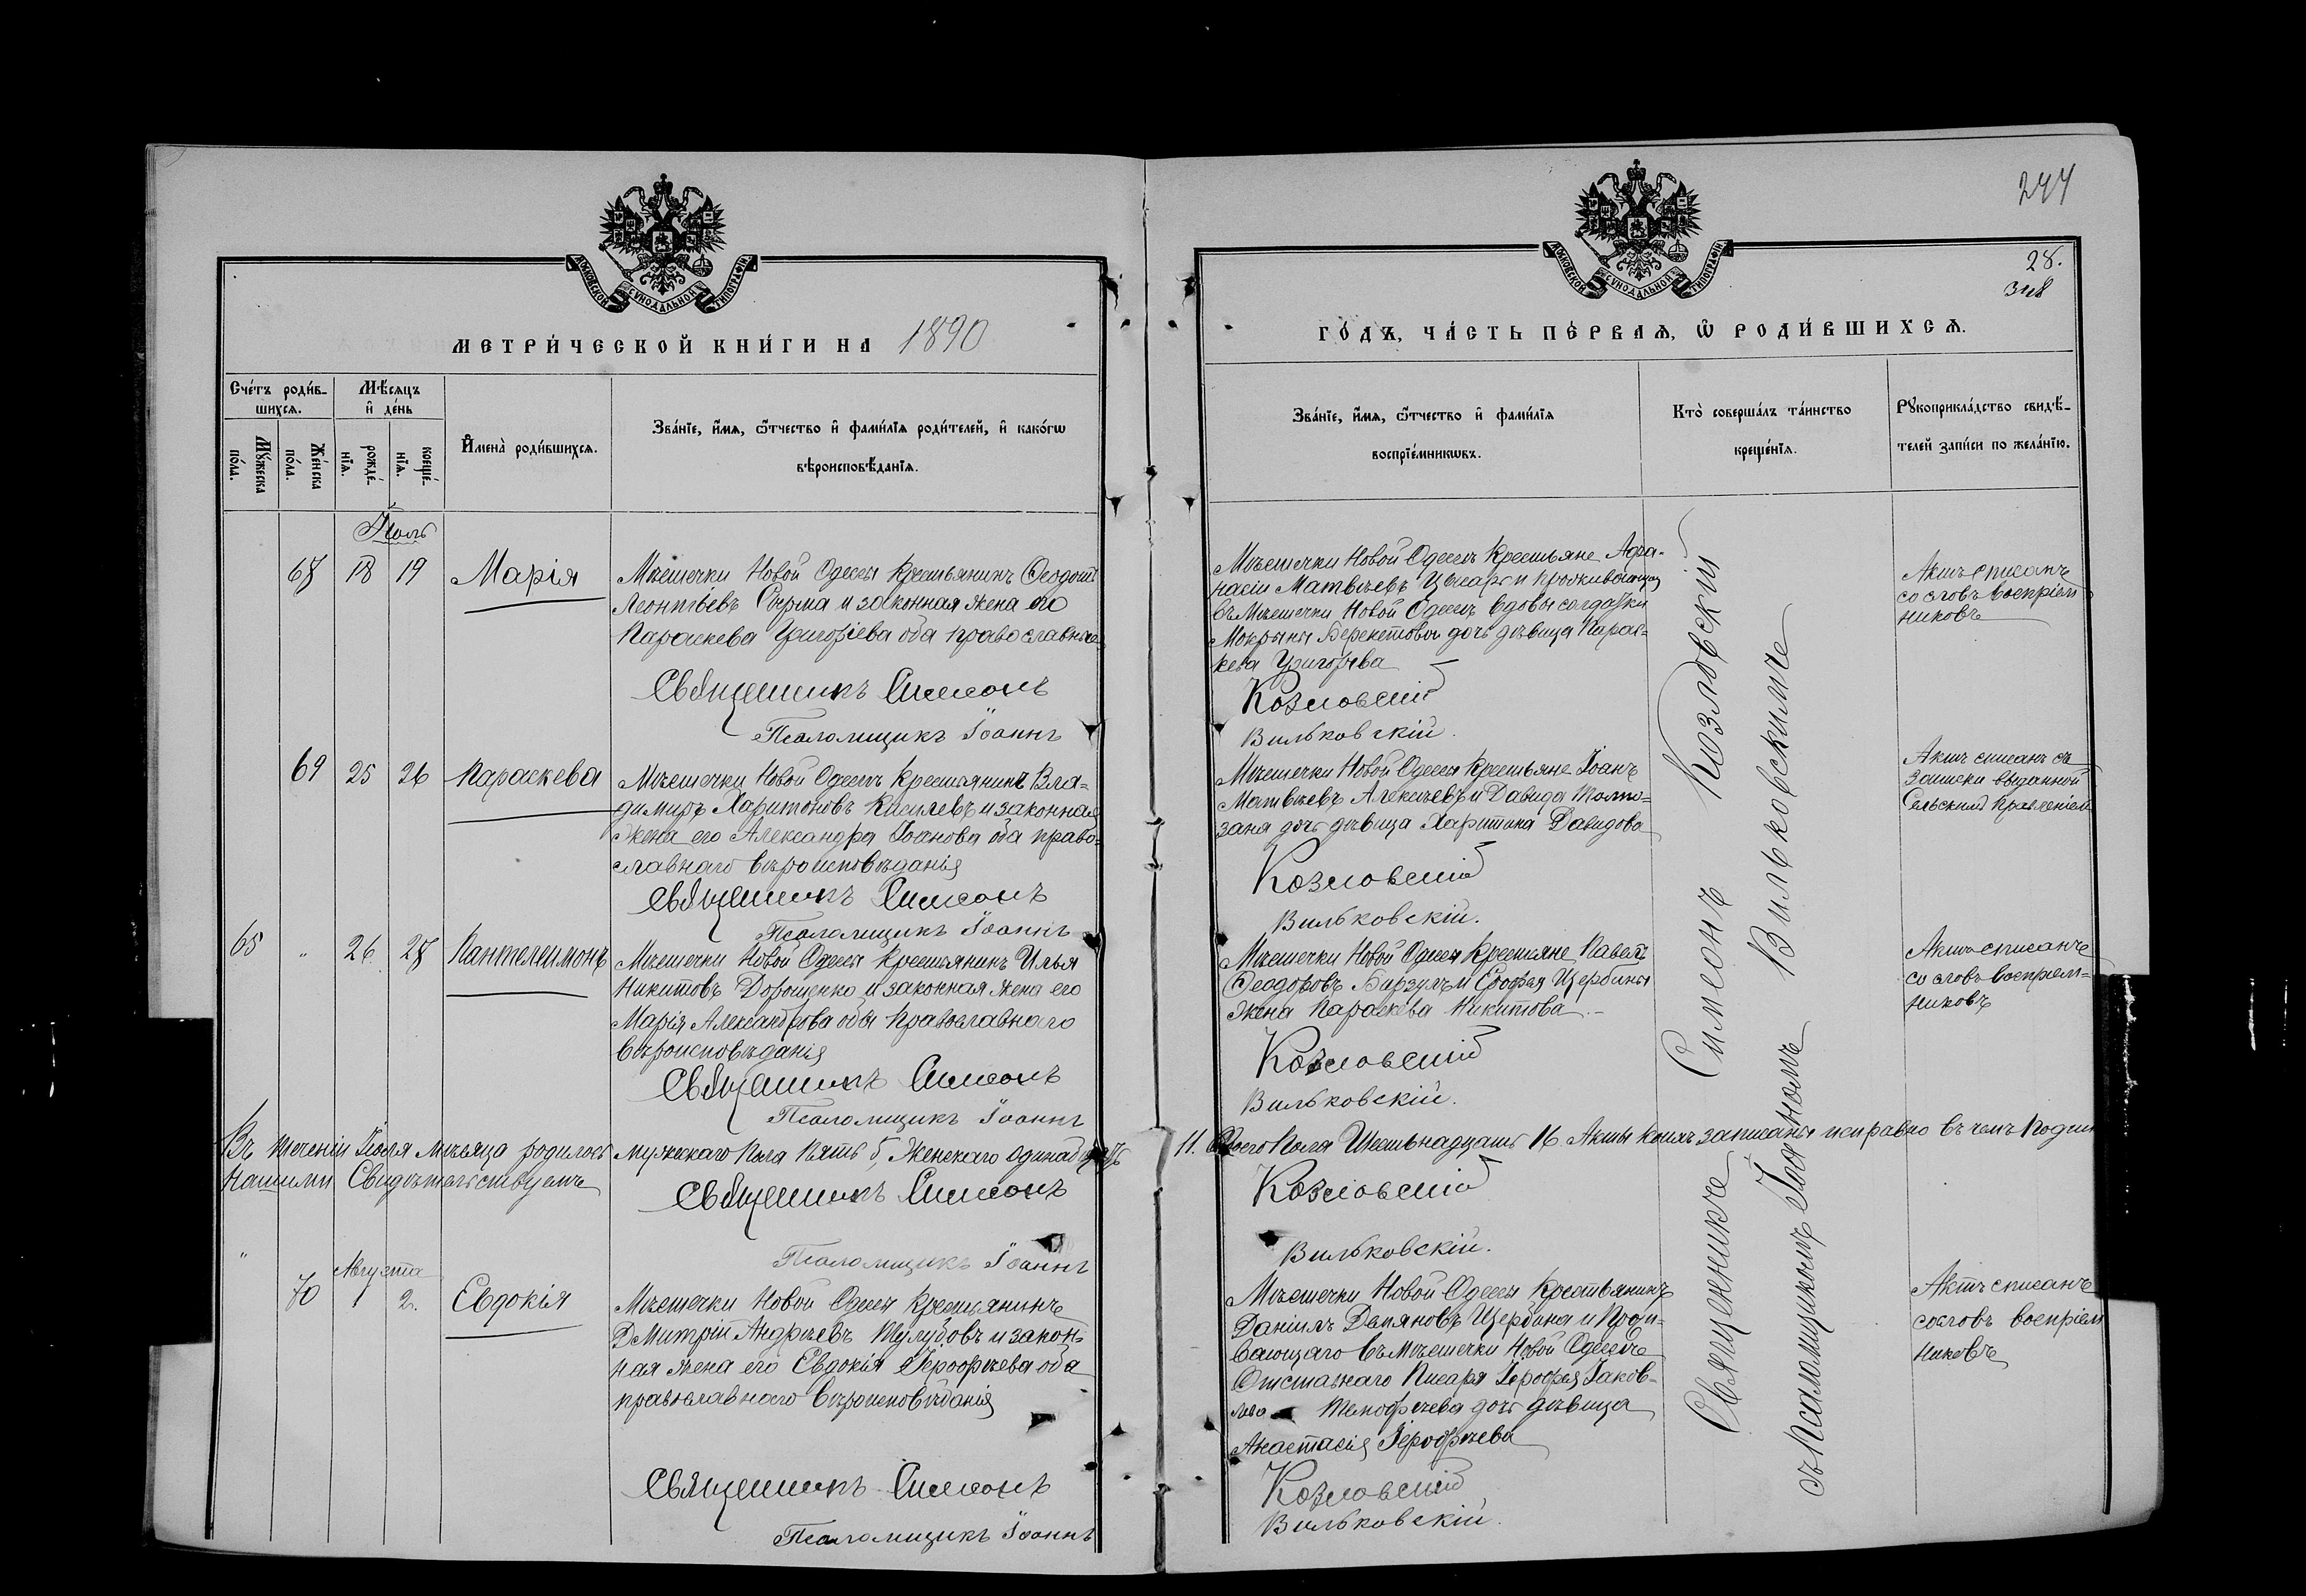 МОСКОВСКОЙ СѴНОДАЛЬНОЙ ТИПОГРАФІИ
МЕТРИ́ЧЕСКОЙ КНИ́ГИ НА 1890
Сче́тъ роди́в-
шихсѧ.
Мѣ́сѧцъ
и҆ де́нь
Мꙋ́жеска
по́ла.
Же́нска
по́ла.
рожде́-
нїѧ.
креще́-
нїѧ.
И҆мена̀ роди́вшихсѧ.
Зва́нїе, и҆́мѧ, ѻ҆́тчество и҆ фамі́лїѧ роди́телей, и҆ како́гѡ
вѣроисповѣ́данїѧ.
Іюль
68 18 19 Марія
Мѣстечки Новой Одессы Крестьянинъ Ѳеодотъ
Леонтьевъ Сырма и законная жена его
Параскева Григоріева оба православные
Священникъ Симеонъ
Псаломщикъ Іоаннъ
69 25 26 Параскева
Мѣстечки Новой Одессъ Крестьянинъ Вла-
димиръ Харитоновъ Киселевъ и законная
жена его Александра Іоанова оба право-
славнаго вѣроисповѣданія
Священникъ Симеонъ
Псаломщикъ Іоаннъ
65 " 26 28 Пантелеимонъ
Мѣстечки Новой Одессы Крестьянинъ Илья
Никитовъ Дорошенко и законная жена его
Марія Александрова обы православнаго
вѣроисповѣданія
Священникъ Симеонъ
Псаломщикъ Іоаннъ
Въ теченіи Іюля мѣсяца родилось мужескаго пола пять 5, женскаго одинадцать
Нашими Свидѣтельствуемъ
Священникъ Симеонъ
Псаломщикъ Іоаннъ
Августа
" 70 1 2. Евдокія
Мѣстечки Новой Одессы Крестьянинъ
Дмитрій Андрѣевъ Тулубовъ и закон-
ная жена его Евдокія Іерофѣева оба
православнаго вѣроисповѣданія
Священникъ Симеонъ
Псаломщикъ Іоаннъ
244
28.
МОСКОВСКОЙ СѴНОДАЛЬНОЙ ТИПОГРАФІИ
ГО́ДЪ, ЧА́СТЬ ПЕ́РВАѦ, Ѡ҆ РОДИ́ВШИХСѦ.
Зва́нїе, и҆́мѧ, ѻ҆́тчество и҆ фамі́лїѧ
воспрїе́мникѡвъ.
Кто̀ соверша́лъ та́инство
креще́нїѧ.
Рꙋкоприкла́дство свидѣ́-
телей за́писи по жела́нїю.
Мѣстечки Новой Одессъ Крестьяне Афа-
насій Матвѣевъ Цыкаръ и проживающей
въ Мѣстечки Новой Одессъ вдовы солдатки
Мокрины Берекетовой дочь дѣвица Парас-
кева Григорьева
Козловскій
Вильковскій.
Актъ списанъ
со словъ воспріем
никовъ
Мѣстечки Новой Одессы Крестьяне Іоанъ
Матвѣевъ Алексѣевъ и Давида Толто-
заня дочь дѣвица Харитина Давидова
Козловскій
Вильковскій.
Актъ списанъ съ
записки выданной
Сельскимъ Правленіем
Мѣстечки Новой Одессы Крестьяне Павелъ
Ѳеодоровъ Бирзулъ и Ерофея Щербины
жена Параскева Никитова.
Козловскій
Вильковскій.
Актъ списанъ
со словъ воспріем-
никовъ
11. Обоего Пола Шестьнадцать 16 Акты коихъ записаны исправно въ чемъ Подпи
Козловскій
Вильковскій.
Мѣстечки Новой Одессы Крестьянинъ
Даніилъ Демяновъ Щербина и Прожи-
вающаго въ Мѣстечки Новой Одессъ
Отставнаго Писаря Іерофея Іаков-
лева Тимофѣева дочь дѣвица
Анастасія Іерофѣева
Козловскій
Вильковскій.
Актъ списанъ
со словъ воспріем
никовъ
Священникъ Симеонъ Козловскій
съ Псаломщикомъ Іоанномъ Вильковскимъ